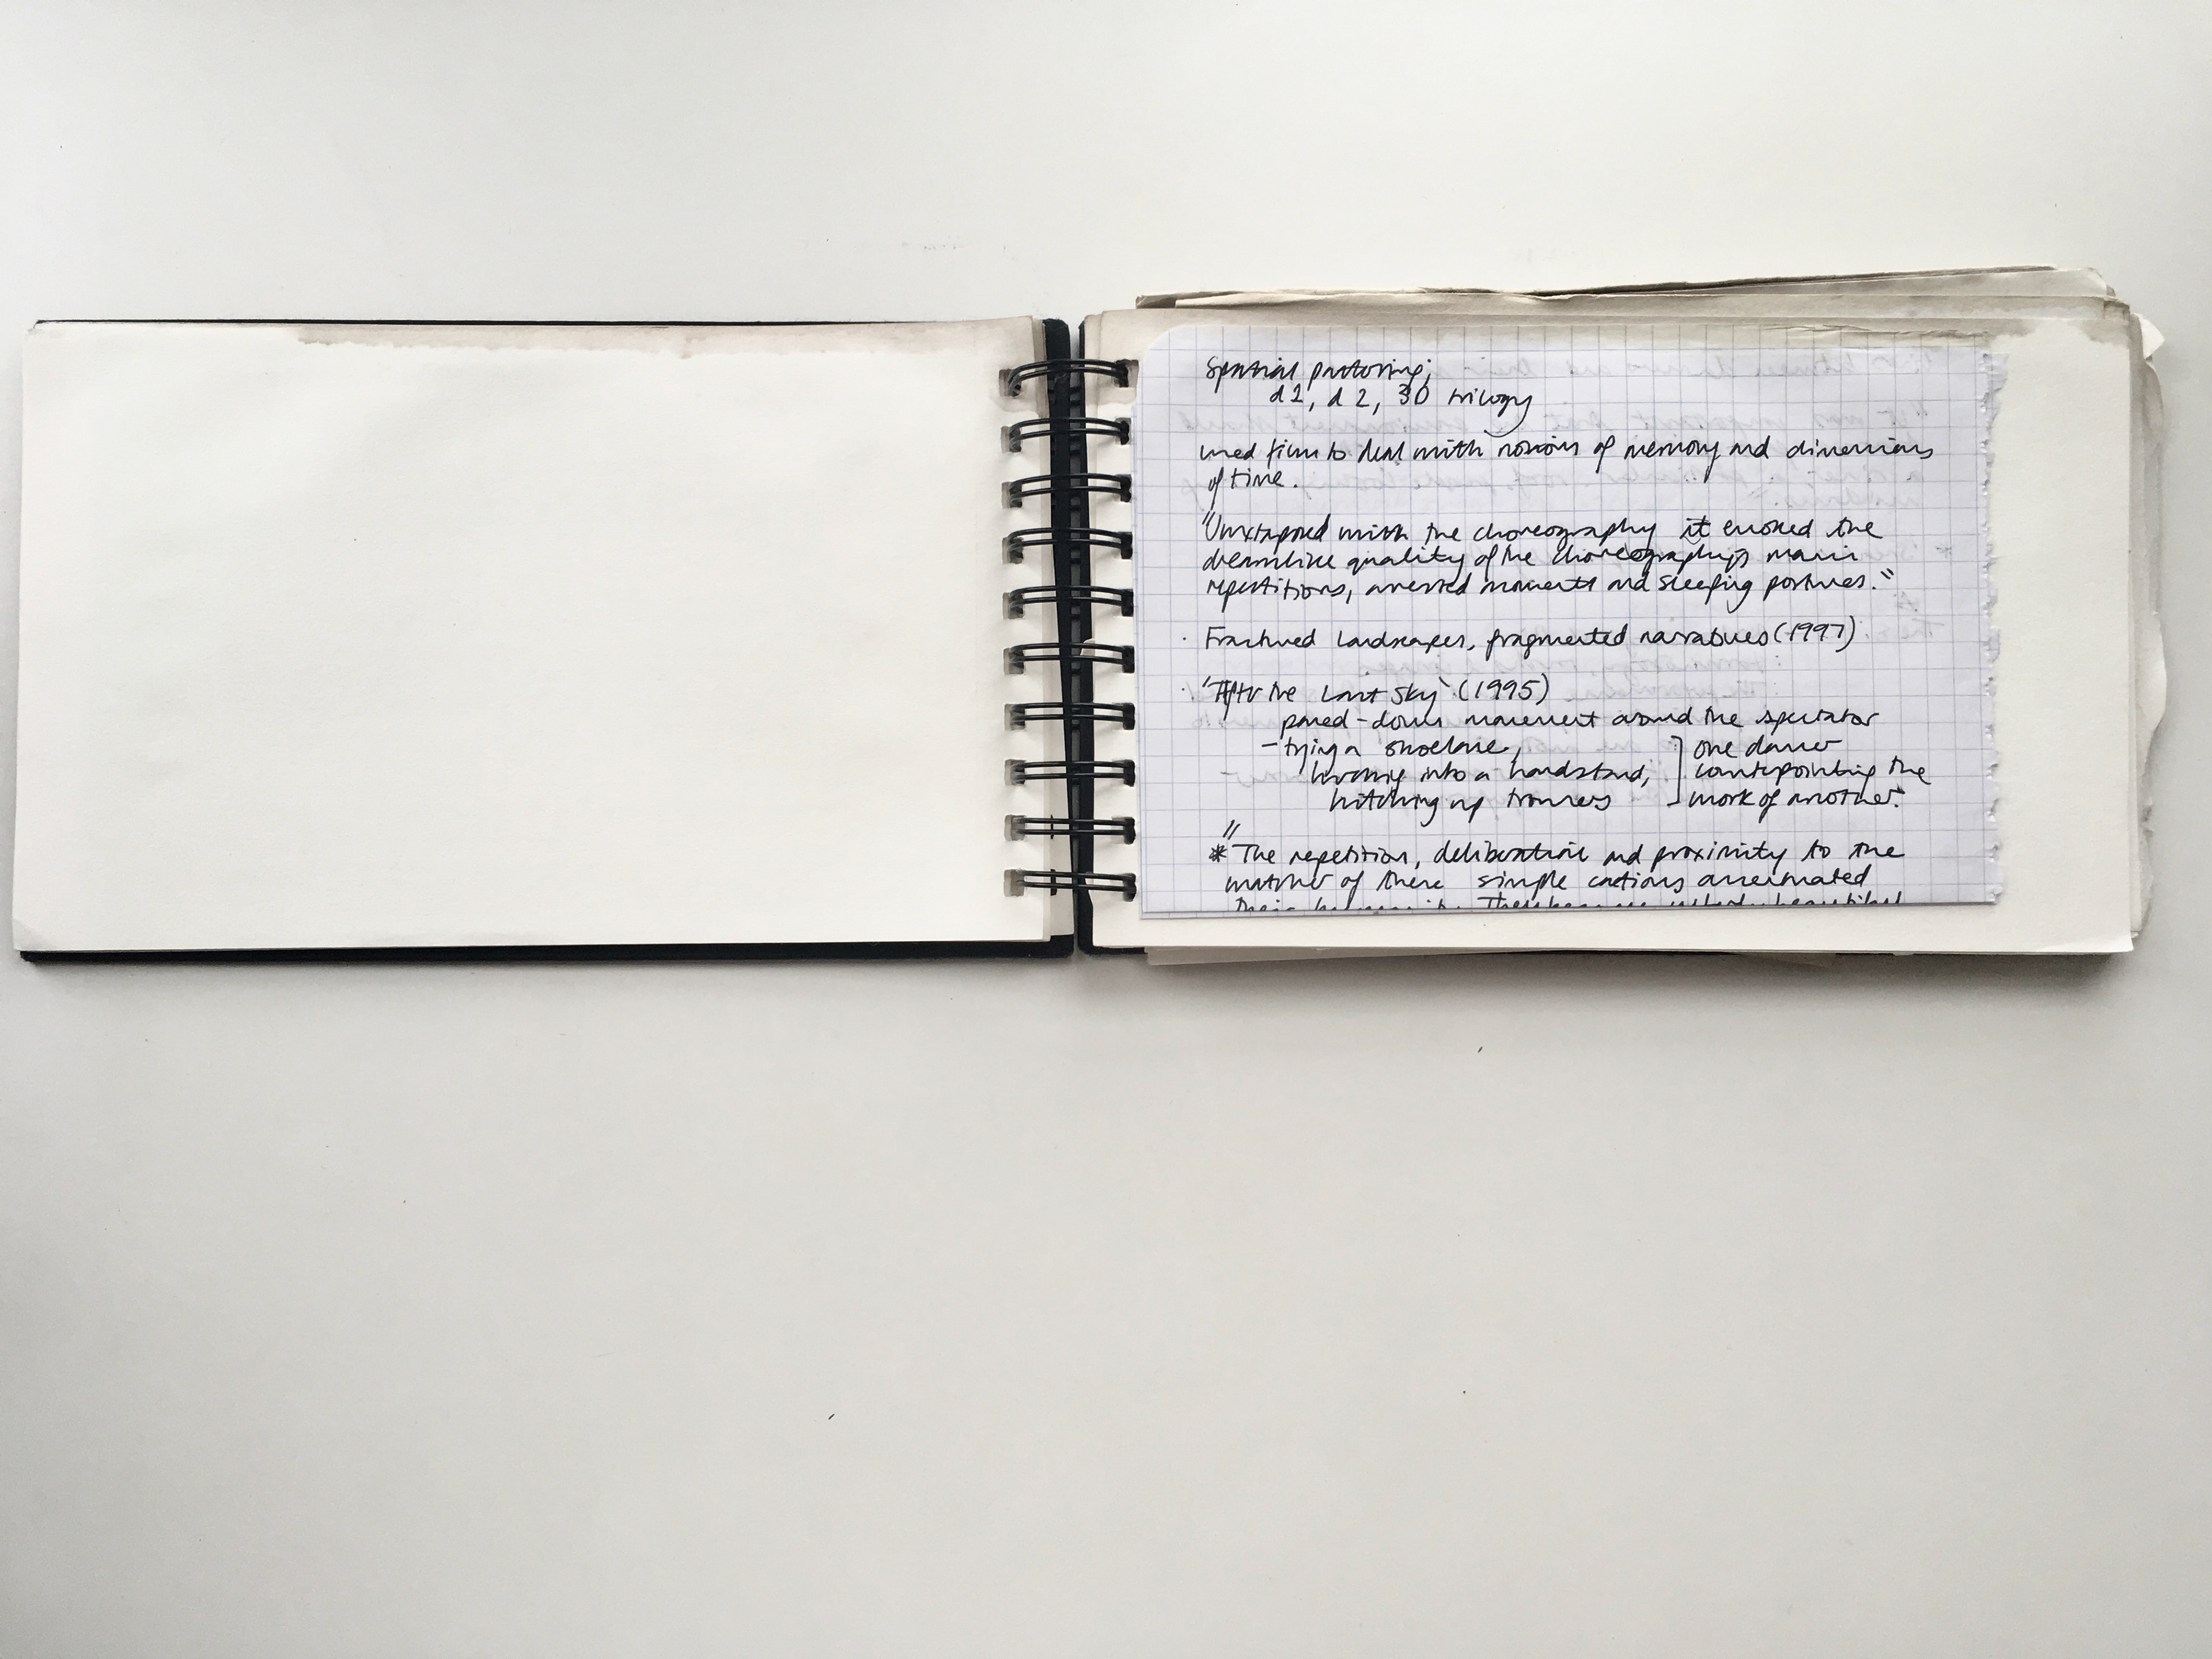 Spatial
d1, d2, 3D trilogy
used film to deal with notions of memory and dimensions
of time.
"Juxtaposed with the choreography it evoked the
dreamlike quality of the choreography's main
repetitions, arrested moments and sleeping postures."
· Fractured Landscapes, fragmented narratives (1997)
· 'After the Last Sky' (1995)
pared-down movement around the spectator
- tying a shoelace,
into a handstand,
hitching up trousers
] one dancer
counterpointing the
work of another.
"
* The repetition, deliberation and proximity to the
watcher of these simple actions